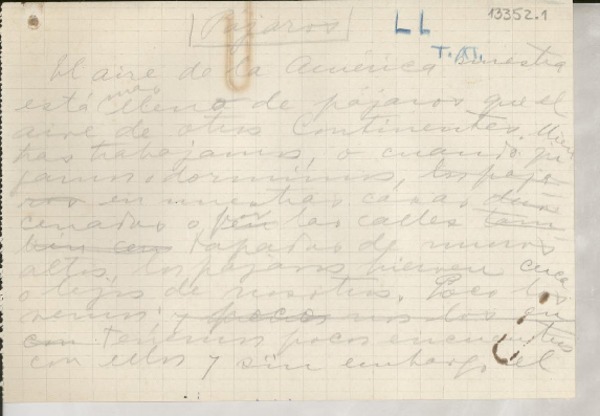 Pájaros
LL
13352.1
El aire de la América nuestra
está más lleno de pájaros que el
aire de otros Continentes. Mien
tras trabajamos, o cuando ju
gamos o dormimos, los pája
ros en nuestras casas
o por las calles
tapadas de muros
altos, los pájaros hierven cerca
o lejos de nosotros. Poco los
vemos y pocos
con tenemos pocos encuentros
con ellos y sin embargo el